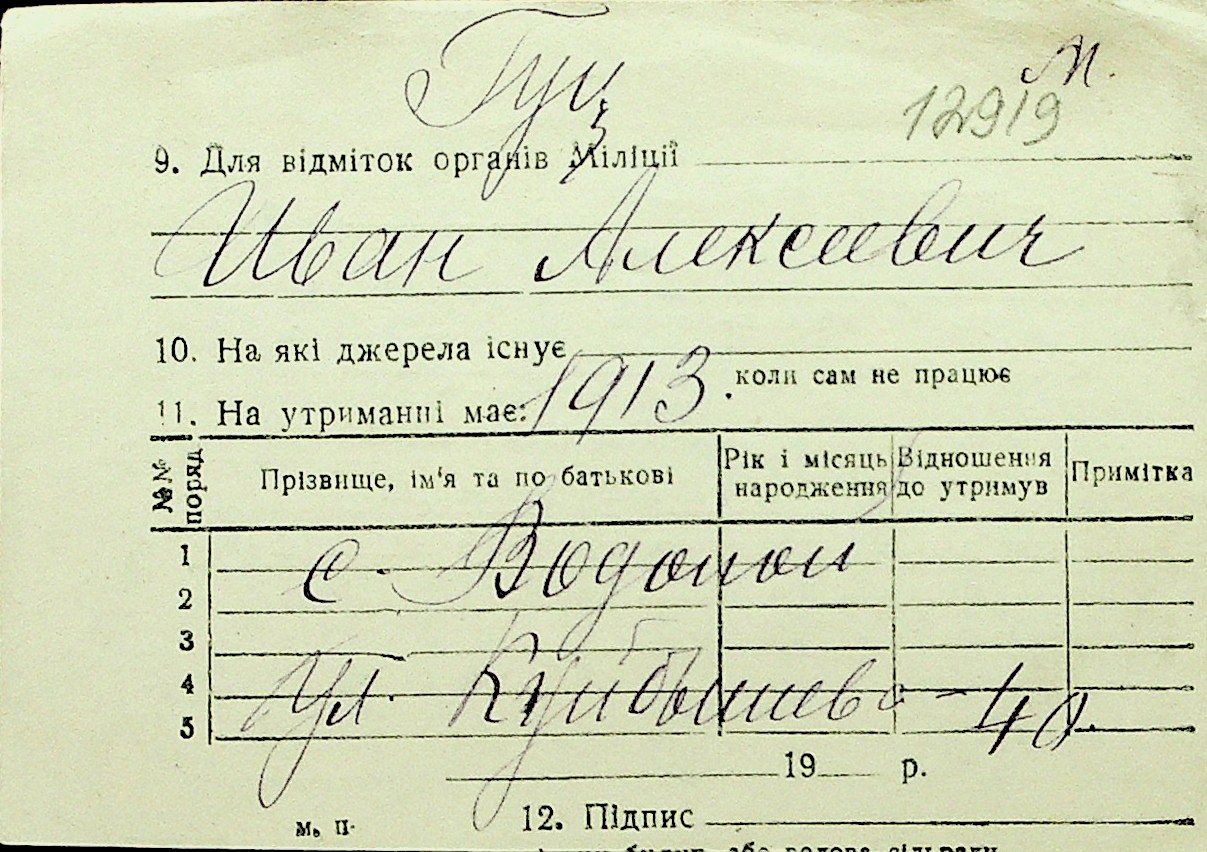 Гуц
М.
12919
9. Для відміток органів Міліції
Иван Алексеевич
10. На які джерела існує
коли сам не працює
11. На утриманні має:
1913.
№№ поряд
Прізвище, ім'я та по батькові
Рік і місяць народження
Відношення до утримув
Примітка
1
с. Водопои
2
3
4
ул. Куйбышева - 40.
5
19 р.
м. п.
12. Підпис